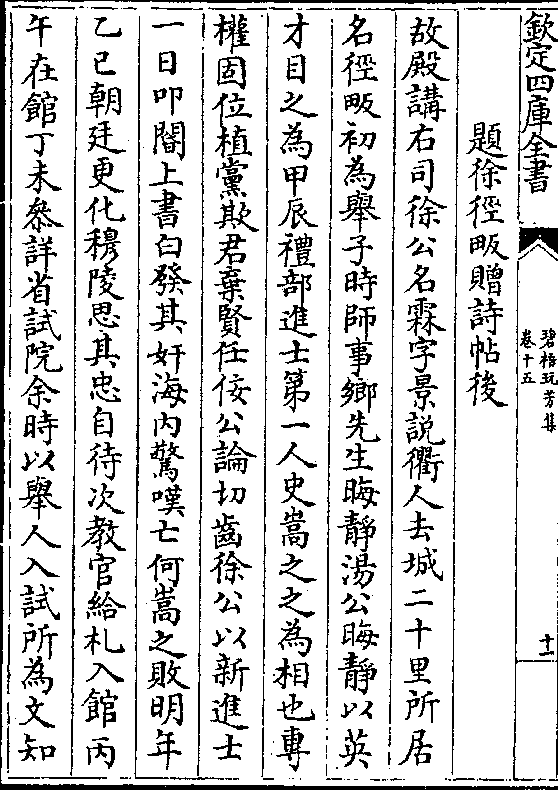 欽定四庫全書
碧梧玩芳集
卷十五
十一
題徐徑畈贈詩帖後
故殿講右司徐公名霖字景説衢人去城二十里所居
名徑畈初為舉子時師事鄉先生晦靜湯公晦靜以英
才目之為甲辰禮部進士第一人史嵩之之為相也專
權固位植黨欺君棄賢任佞公論切齒徐公以新進士
一日叩閽上書白發其奸海内驚嘆亡何嵩之敗明年
乙巳朝廷更化穆陵思其忠自待次教官給札入館丙
午在館丁未叅詳省試院余時以舉人入試所為文知